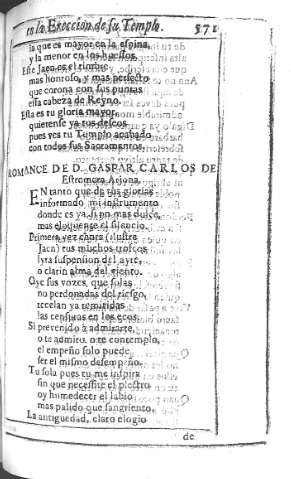 en la Ereccion de su Templo. 571
la que es mayor en la espina,
y la menor en los huessos.
Este Jaen es el timbre
mas honroso, y mas perfecto
que corona con sus puntas
essa cabeza de Reyno.
Esta es tu gloria mayor,
quietense ya tus deseos
pues ves tu Templo acabado
con todos sus Sacramentos.
ROMANCE DE D. GASPAR CARLOS DE
Estremera Arjona.
EN tanto que de tus glorias
informado mi instrumento
donde es ya, si no mas dulce,
mas eloquente el silencio.
Primera vez cantra (ilustre
Jaca) tus muchos trofeos
lyra suspension del ayre,
o clarin alma del viento.
Oye sus vozes, que solas
no perdonadas del riesgo,
rezelan ya remitidas
las censuras en los ecos.
Si prevenido à admirarte,
o te admiro, o te contemplo,
el empeño solo puede
ser el mismo desempeño.
Tu sola pues tu me inspira
sin que necessite el plectro
oy humedecer el labio
mas palido que sangriento.
La antiguedad, claro elogio
de